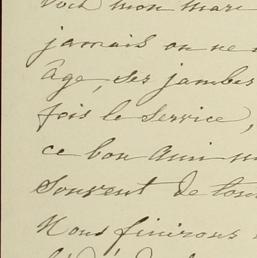 voit mon mari
jamais on ne
âge, ses jambes
fois le service,
ce bon ami
souvent de
Nous finirons